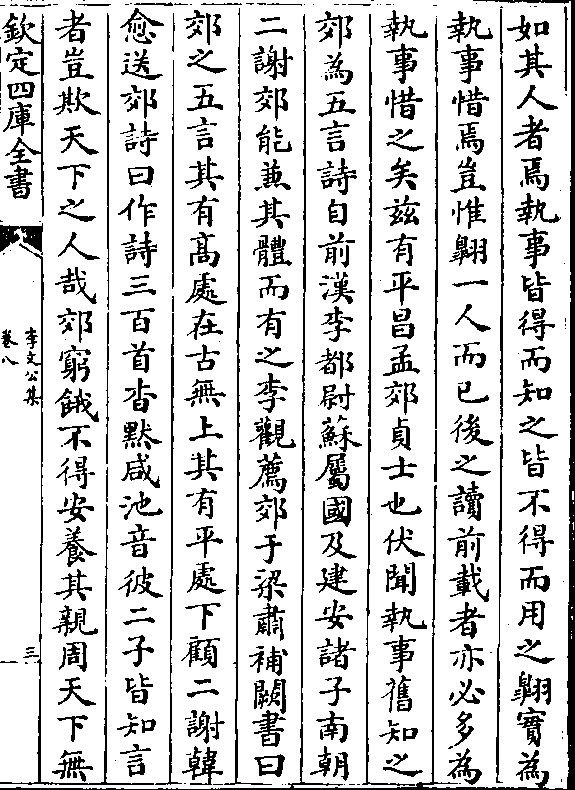 如其人者焉執事皆得而知之皆不得而用之翺實為
執事惜焉豈惟翺一人而已後之讀前載者亦必多為
執事惜之矣兹有平昌孟郊貞士也伏聞執事舊知之
郊為五言詩自前漢李都尉蘇屬國及建安諸子南朝
二謝郊能兼其體而有之李觀薦郊于梁肅補闕書曰
郊之五言其有髙處在古無上其有平處下顧二謝韓
愈送郊詩曰作詩三百首杳默咸池音彼二子皆知言
者豈欺天下之人哉郊窮餓不得安養其親周天下無
欽定四庫全書
李文公集
卷八
三